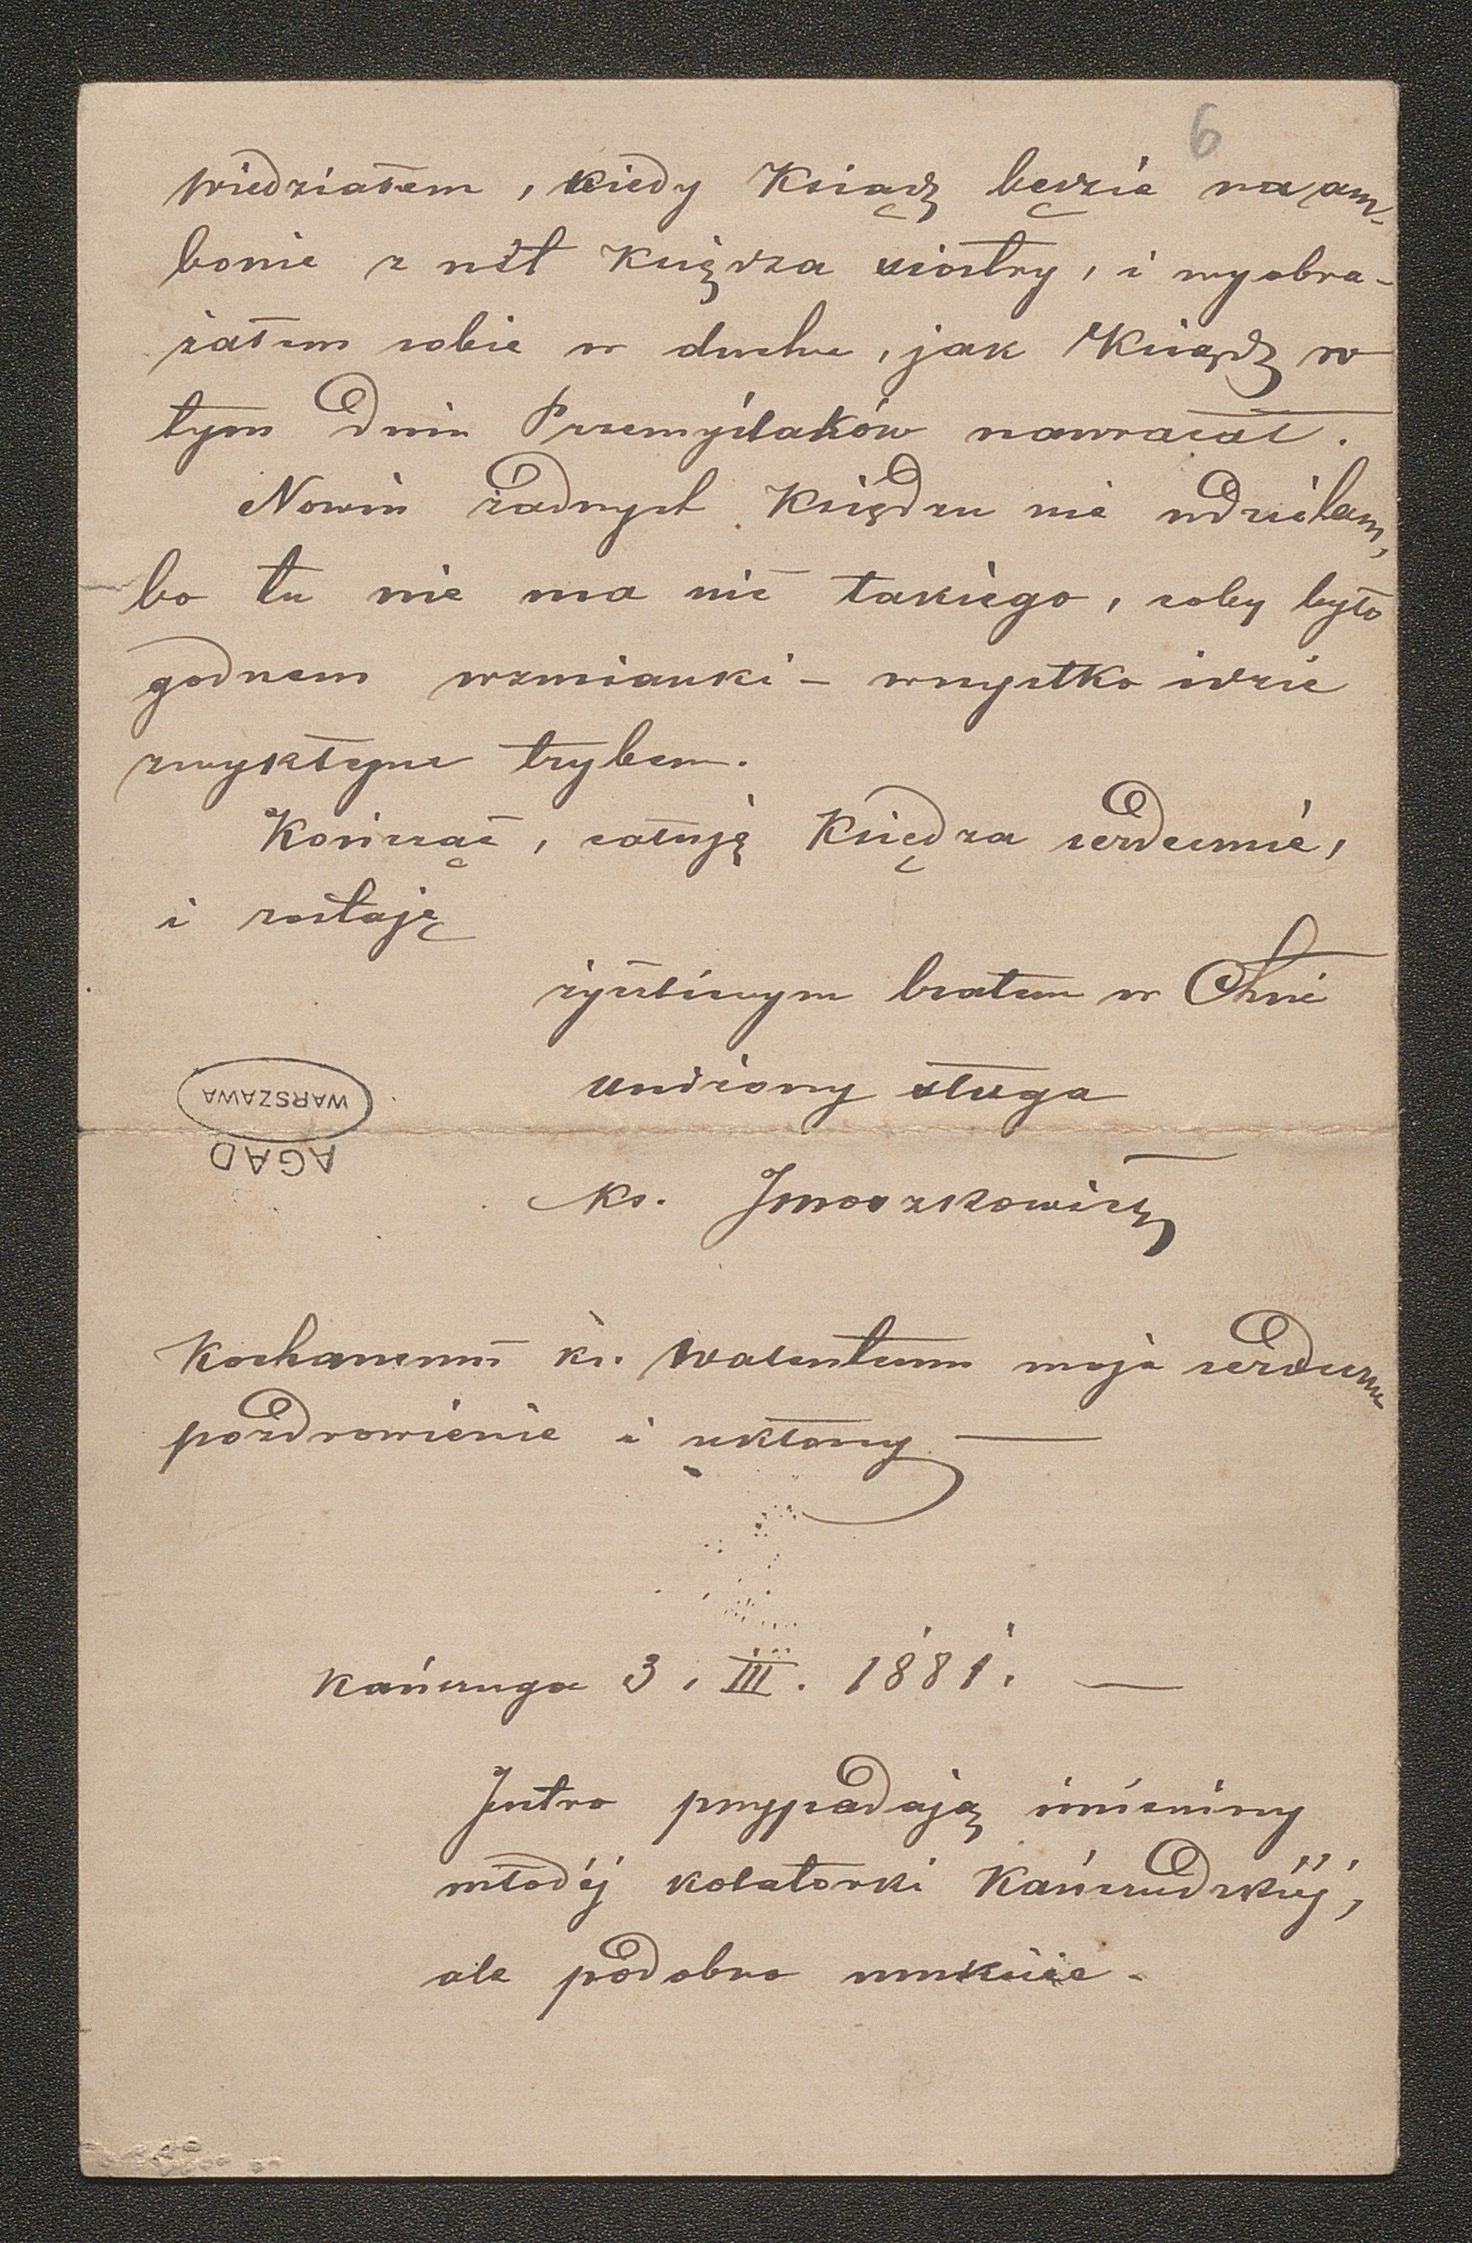 6
wiedziałem, kiedy Ksiądz będzie na am-
bonie z ust Księdza siostry, i wyobra-
żałem sobie w duchu, jak Ksiądz w
tym dniu Przemyślaków nawracał.
Nowin żadnych Księdzu nie udzielam,
bo tu nie ma nic takiego, coby było
godnem wzmianki – wszystko idzie
zwykłym trybem.
Kończąc, całuję Księdza serdecznie,
i zostaję
życzliwym bratem w Chrie
uniżony sługa
WARSZAWA
AGAD
ks. Jmoszkowicz
Kochanemu ks. Walentemu moje serdeczne
pozdrowienie i ukłony —
Kańczuga 3. III. 1881. —
Jutro przypadają imieniny
młodéj kolatorki Kańczudzkiéj,
ale podobno